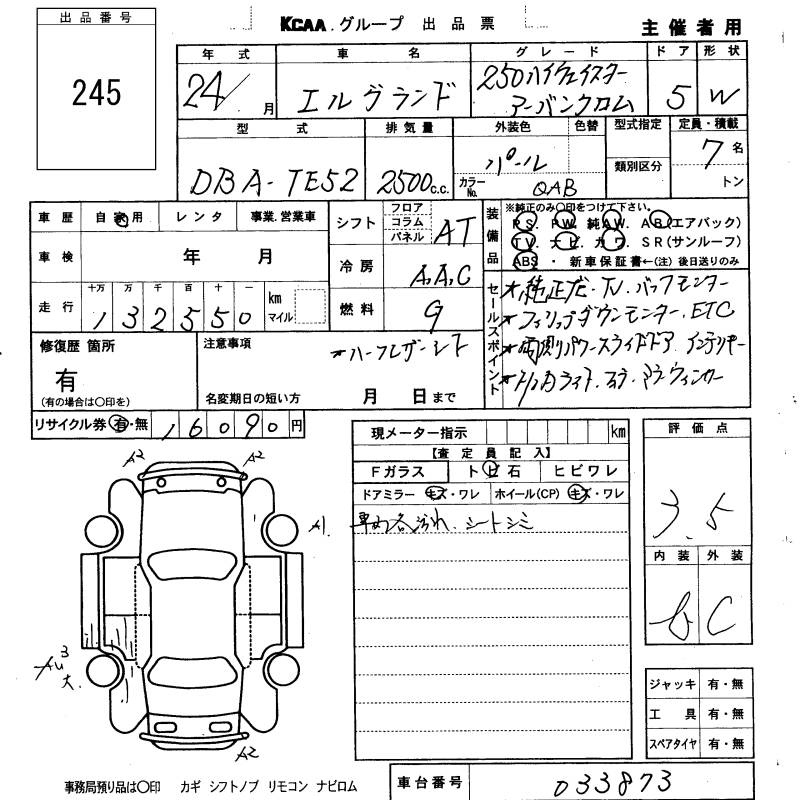 出品番号
245
KCAA グループ 出品票
主催者用
年式 車名 グレード ドア 形状
24/ 月 エルグランド 250ハイウェイスター アーバンクロム 5 W
型式 排気量 外装色 色替 型式指定 定員・積載
DBA-TE52 2500c.c. パール 類別区分 7名
カラーNo. QAB トン
車歴 自家用 レンタ 事業.営業車
シフト フロア コラム パネル AT
装備品 ※純正のみ○印をつけて下さい。
PS. PW. 純AW. AB(エアバック)
TV. ナビ. カワ. SR(サンルーフ)
ABS・新車保証書←(注) 後日送りのみ
車検 年 月
冷房 A.A.C
走行 十万 万 千 百 十 一 km マイル
1 3 2 5 5 0
燃料 G
セールスポイント
*純正ナビ.TV.バックモニター
*フリップダウンモニター.ETC
*両側パワースライドドア インテリキー
修復歴 箇所
有
(有の場合は○印を)
注意事項
*ハーフレザーシート
名変期日の短い方 月 日まで
リサイクル券 有・無 16090円
現メーター指示 km
【査定員記入】
Fガラス トビ石 ヒビワレ
ドアミラー キズ・ワレ ホイール(CP) キズ・ワレ
車内各汚れ.シートシミ
評価点
3.5
内装 外装
B C
A2 A2
A1.
AU3
大.
A2
ジャッキ 有・無
工具 有・無
スペアタイヤ 有・無
事務局預り品は○印 カギ シフトノブ リモコン ナビロム
車台番号 033873